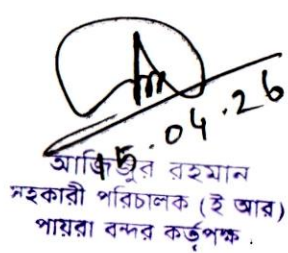 15.04.26
আজিজুর রহমান
সহকারী পরিচালক (ই আর)
পায়রা বন্দর কর্তৃপক্ষ.